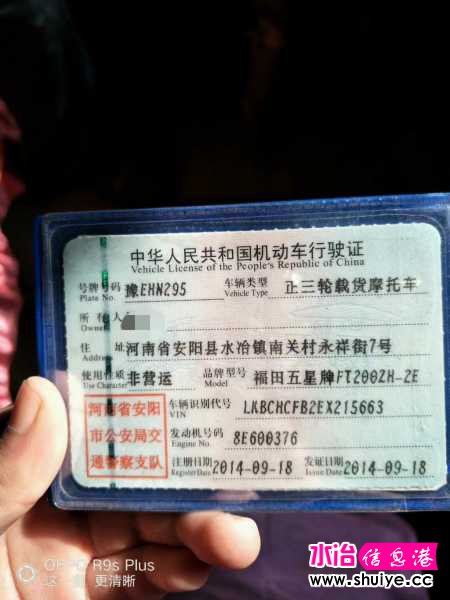 中华人民共和国机动车行驶证
Vehicle License of the People's Republic of China
号牌号码 豫EHN295 车辆类型 正三轮载货摩托车
Plate No. Vehicle Type
所有人
Owner
住 址 河南省安阳县水冶镇南关村永祥街7号
Address
使用性质 非营运 品牌型号 福田五星牌FT200ZH-2E
Use Character Model
河南省安阳
市公安局交
通警察支队
车辆识别代号 LKBCHCFB2EX215663
VIN
发动机号码 8E600376
Engine No.
注册日期 2014-09-18 发证日期 2014-09-18
Register Date Issue Date
OPPO R9s Plus
这一刻 更清晰
水冶信息港
www.shuiye.cc